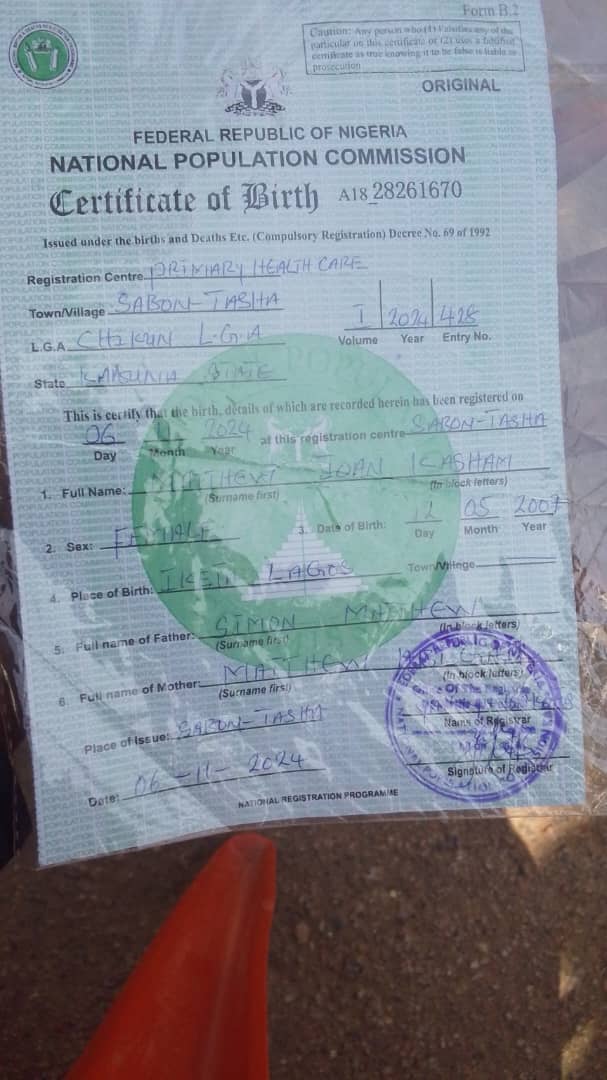 Form B.2
Caution: Any person who (1) Falsifies any of the
particular on this certificate or (2) uses a falsified
certificate as true knowing it to be false is liable to
prosecution
ORIGINAL
FEDERAL REPUBLIC OF NIGERIA
NATIONAL POPULATION COMMISSION
Certificate of Birth A18 28261670
Issued under the births and Deaths Etc. (Compulsory Registration) Decree No. 69 of 1992
Registration Centre PRIMARY HEALTH CARE
Town/Village SABON-TASHA
L.G.A CHIKUN L.G.A
I 2024 428
Volume Year Entry No.
State KADUNA STATE
This is certify that the birth, details of which are recorded herein has been registered on
06 11 2024 at this registration centre SABON-TASHA
Day Month Year
1. Full Name: MATTHEW JOAN KASHAM
(Surname first) (In block letters)
2. Sex: FEMALE 3. Date of Birth: 12 05 2007
Day Month Year
4. Place of Birth: IKEJA LAGOS Town/Village
5. Full name of Father: SIMON MATTHEW
(Surname first) (In block letters)
6. Full name of Mother: MATTHEW
(Surname first) (In block letters)
Place of Issue: SABON-TASHA
Name of Registrar
Date: 06-11-2024
Signature of Registrar
NATIONAL REGISTRATION PROGRAMME